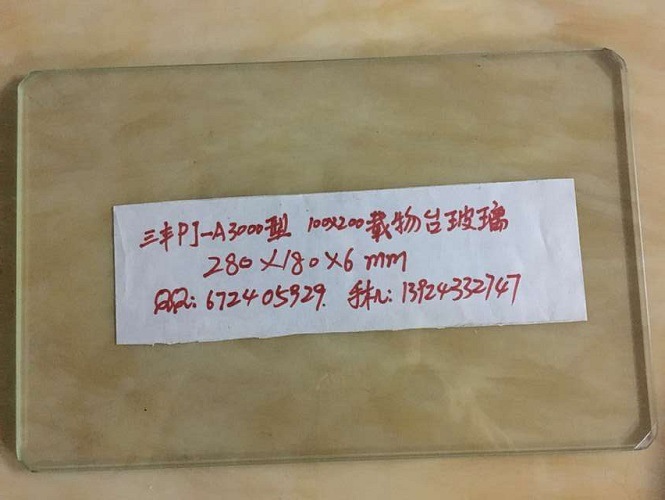 三丰PJ-A3000型 100X200载物台玻璃
280X180X6mm
QQ:672405929. 手机:13924332747